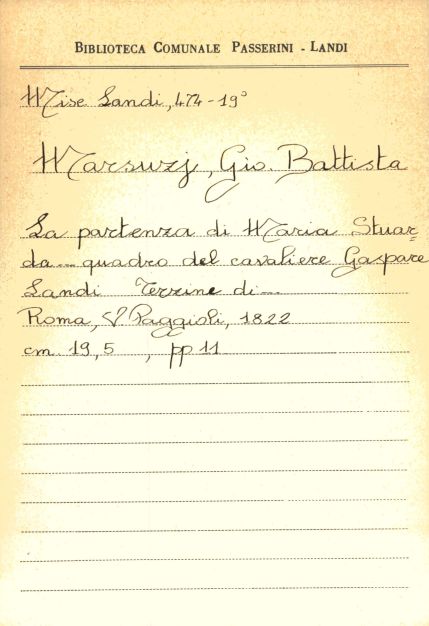 BIBLIOTECA COMUNALE PASSERINI - LANDI
Misc Landi, 474-19°
Marsuzj, Gio. Battista
La partenza di Maria Stuar=
da... quadro del cavaliere Gaspare
Landi Terzine di...
Roma, V Poggioli, 1822
cm. 19,5 , pp 11